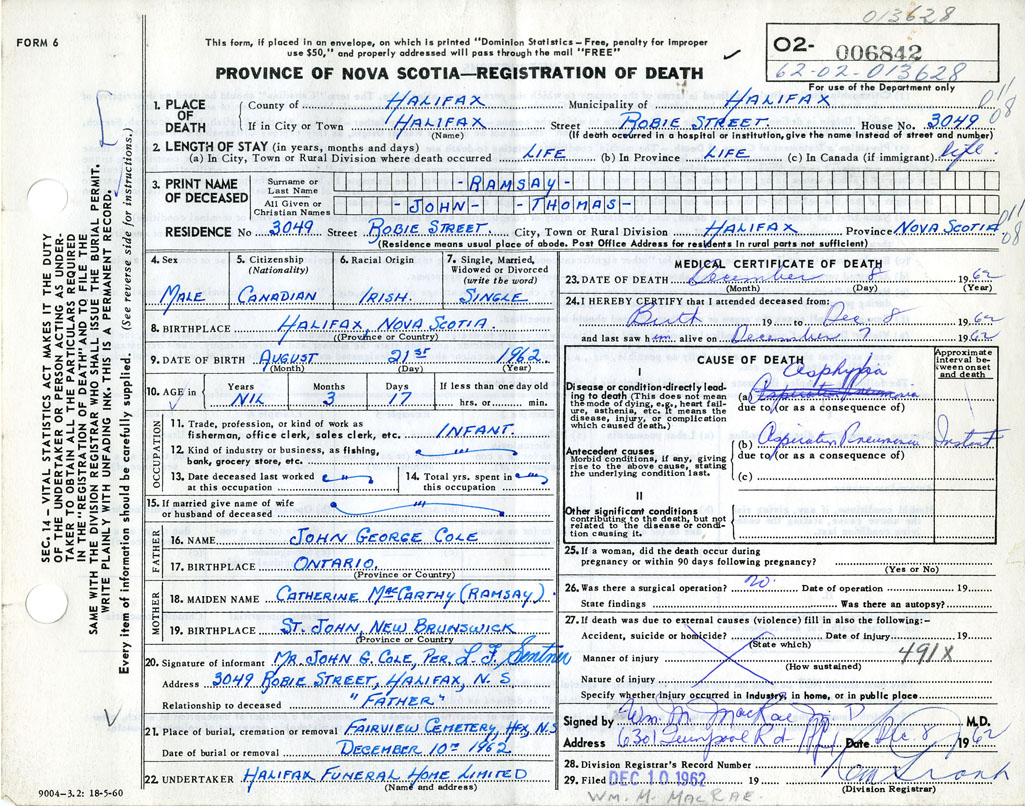 013628
FORM 6
This form, if placed in an envelope, on which is printed "Dominion Statistics – Free, penalty for improper
use $50," and properly addressed will pass through the mail "FREE"
02- 006842
62-02-013628
For use of the Department only
PROVINCE OF NOVA SCOTIA—REGISTRATION OF DEATH
1. PLACE OF DEATH
County of HALIFAX Municipality of HALIFAX
If in City or Town HALIFAX Street ROBIE STREET. House No. 3049
(Name) (If death occurred in a hospital or institution, give the name instead of street and number)
08
2. LENGTH OF STAY (in years, months and days)
(a) In City, Town or Rural Division where death occurred LIFE (b) In Province LIFE (c) In Canada (if immigrant) Life.
3. PRINT NAME OF DECEASED
Surname or Last Name -RAMSAY-
All Given or Christian Names -JOHN- -THOMAS-
RESIDENCE No 3049 Street ROBIE STREET. City, Town or Rural Division HALIFAX Province NOVA SCOTIA
08
(Residence means usual place of abode. Post Office Address for residents in rural parts not sufficient)
4. Sex
MALE
5. Citizenship
(Nationality)
CANADIAN
6. Racial Origin
IRISH.
7. Single, Married,
Widowed or Divorced
(write the word)
SINGLE
8. BIRTHPLACE HALIFAX, NOVA SCOTIA.
(Province or Country)
9. DATE OF BIRTH AUGUST 21ST 1962
(Month) (Day) (Year)
10. AGE in
Years Months Days If less than one day old
NIL 3 17 hrs. or min.
OCCUPATION
11. Trade, profession, or kind of work as
fisherman, office clerk, sales clerk, etc. INFANT.
12. Kind of industry or business, as fishing,
bank, grocery store, etc.
13. Date deceased last worked
at this occupation
14. Total yrs. spent in
this occupation
15. If married give name of wife
or husband of deceased
FATHER
16. NAME JOHN GEORGE COLE
17. BIRTHPLACE ONTARIO.
(Province or Country)
MOTHER
18. MAIDEN NAME CATHERINE MacCARTHY (RAMSAY)
19. BIRTHPLACE ST. JOHN, NEW BRUNSWICK
(Province or Country)
20. Signature of informant MR. JOHN G. COLE, PER. L. F.
Address 3049 ROBIE STREET, HALIFAX, N.S
Relationship to deceased "FATHER"
21. Place of burial, cremation or removal FAIRVIEW CEMETERY, HFX, N.S
Date of burial or removal DECEMBER 10TH 1962
22. UNDERTAKER HALIFAX FUNERAL HOME LIMITED
(Name and address)
MEDICAL CERTIFICATE OF DEATH
23. DATE OF DEATH December 8 1962
(Month) (Day) (Year)
24. I HEREBY CERTIFY that I attended deceased from:
Birth 19 to Dec. 8 1962
and last saw him alive on December 7 1962
CAUSE OF DEATH
Approximate
interval be-
tween onset
and death
I
Disease or condition directly lead-
ing to death (This does not mean
the mode of dying, e.g., heart fail-
ure, asthenia, etc. It means the
disease, injury, or complication
which caused death.)
Asphyxia
(a) Aspiration Pneumonia
due to (or as a consequence of)
Antecedent causes
Morbid conditions, if any, giving
rise to the above cause, stating
the underlying condition last.
(b) Aspiration Pneumonia Instant
due to (or as a consequence of)
(c)
II
Other significant conditions
contributing to the death, but not
related to the disease or condi-
tion causing it.
25. If a woman, did the death occur during
pregnancy or within 90 days following pregnancy?
(Yes or No)
26. Was there a surgical operation? no. Date of operation 19
State findings Was there an autopsy?
27. If death was due to external causes (violence) fill in also the following:-
Accident, suicide or homicide? Date of injury 19
(State which)
Manner of injury 491X
(How sustained)
Nature of injury
Specify whether injury occurred in industry, in home, or in public place
Signed by Wm. M. MacRae M.D. M.D.
Address 6301 Liverpool Rd Date Dec. 8 1962
28. Division Registrar's Record Number
29. Filed DEC 10 1962 19
(Division Registrar)
WM. M. MACRAE.
9004-3.2: 18-5-60
SEC. 14 – VITAL STATISTICS ACT MAKES IT THE DUTY
OF THE UNDERTAKER OR PERSON ACTING AS UNDER-
TAKER TO OBTAIN ALL THE PARTICULARS REQUIRED
IN THE "REGISTRATION OF DEATH" AND TO FILE THE
SAME WITH THE DIVISION REGISTRAR WHO SHALL ISSUE THE BURIAL PERMIT.
WRITE PLAINLY WITH UNFADING INK. THIS IS A PERMANENT RECORD.
Every item of information should be carefully supplied. (See reverse side for instructions.)